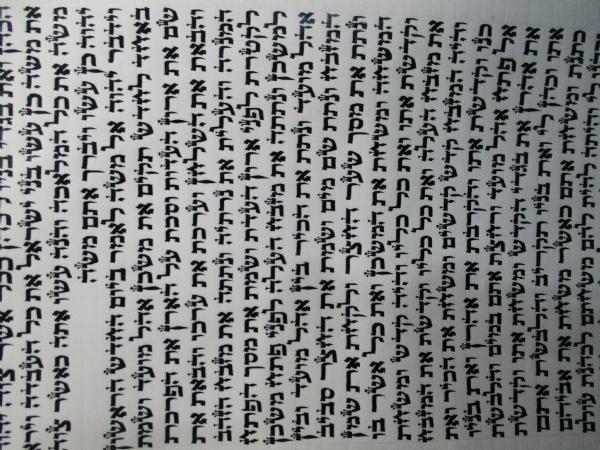 הכהן ואת בגדי בניו לכהן ככל אשר צוה יהוה
את משה כן עשו בני ישראל את כל העבדה וירא
משה את כל המלאכה והנה עשו אתה כאשר צוה
יהוה כן עשו ויברך אתם משה
וידבר יהוה אל משה לאמר ביום החדש הראשון
באחד לחדש תקים את משכן אהל מועד ושמת
שם את ארון העדות וסכת על הארן את הפרכת
והבאת את השלחן וערכת את ערכו והבאת את
המנרה והעלית את נרתיה ונתתה את מזבח הזהב
לקטרת לפני ארון העדת ושמת את מסך הפתח
למשכן ונתתה את מזבח העלה לפני פתח משכן
אהל מועד ונתת את הכיר בין אהל מועד ובין
המזבח ונתת שם מים ושמת את החצר סביב
ונתת את מסך שער החצר ולקחת את שמן
המשחה ומשחת את המשכן ואת כל אשר בו
וקדשת אתו ואת כל כליו והיה קדש ומשחת
את מזבח העלה ואת כל כליו וקדשת את המזבח
והיה המזבח קדש קדשים ומשחת את הכיר ואת
כנו וקדשת אתו והקרבת את אהרן ואת בניו
אל פתח אהל מועד ורחצת אתם במים והלבשת
את אהרן את בגדי הקדש ומשחת אתו וקדשת
אתו וכהן לי ואת בניו תקריב והלבשת אתם
כתנת ומשחת אתם כאשר משחת את אביהם
וכהנו לי והיתה להית להם משחתם לכהנת עולם